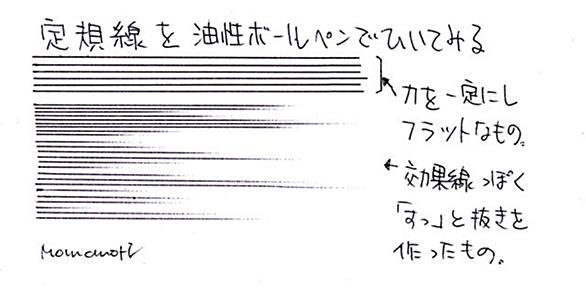 定規線を油性ボールペンでひいてみる
力を一定にし
フラットなもの。
効果線っぽく
「すっ」と抜きを
作ったもの。